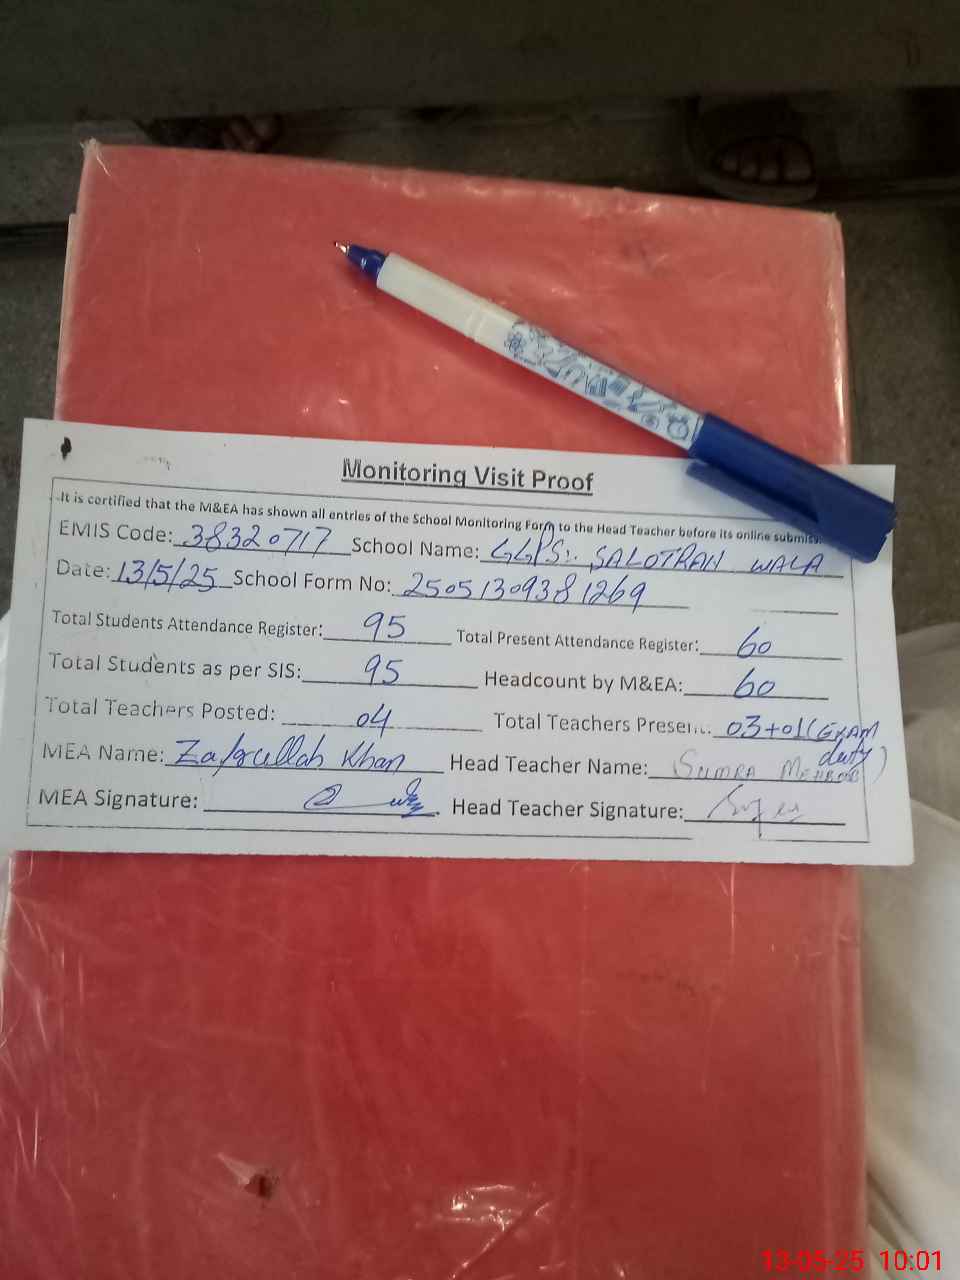 Monitoring Visit Proof
It is certified that the M&EA has shown all entries of the School Monitoring Form to the Head Teacher before its online submiss
EMIS Code: 38320717 School Name: GGPS:. SALOTRAN WALA
Date: 13/5/25 School Form No: 25051309381269
Total Students Attendance Register: 95 Total Present Attendance Register: 60
Total Students as per SIS: 95 Headcount by M&EA: 60
Total Teachers Posted: 04 Total Teachers Present: 03+01(EXAM duty)
MEA Name: Zafrullah Khan Head Teacher Name: SUMRA
MEA Signature: Head Teacher Signature:
13-05-25 10:01